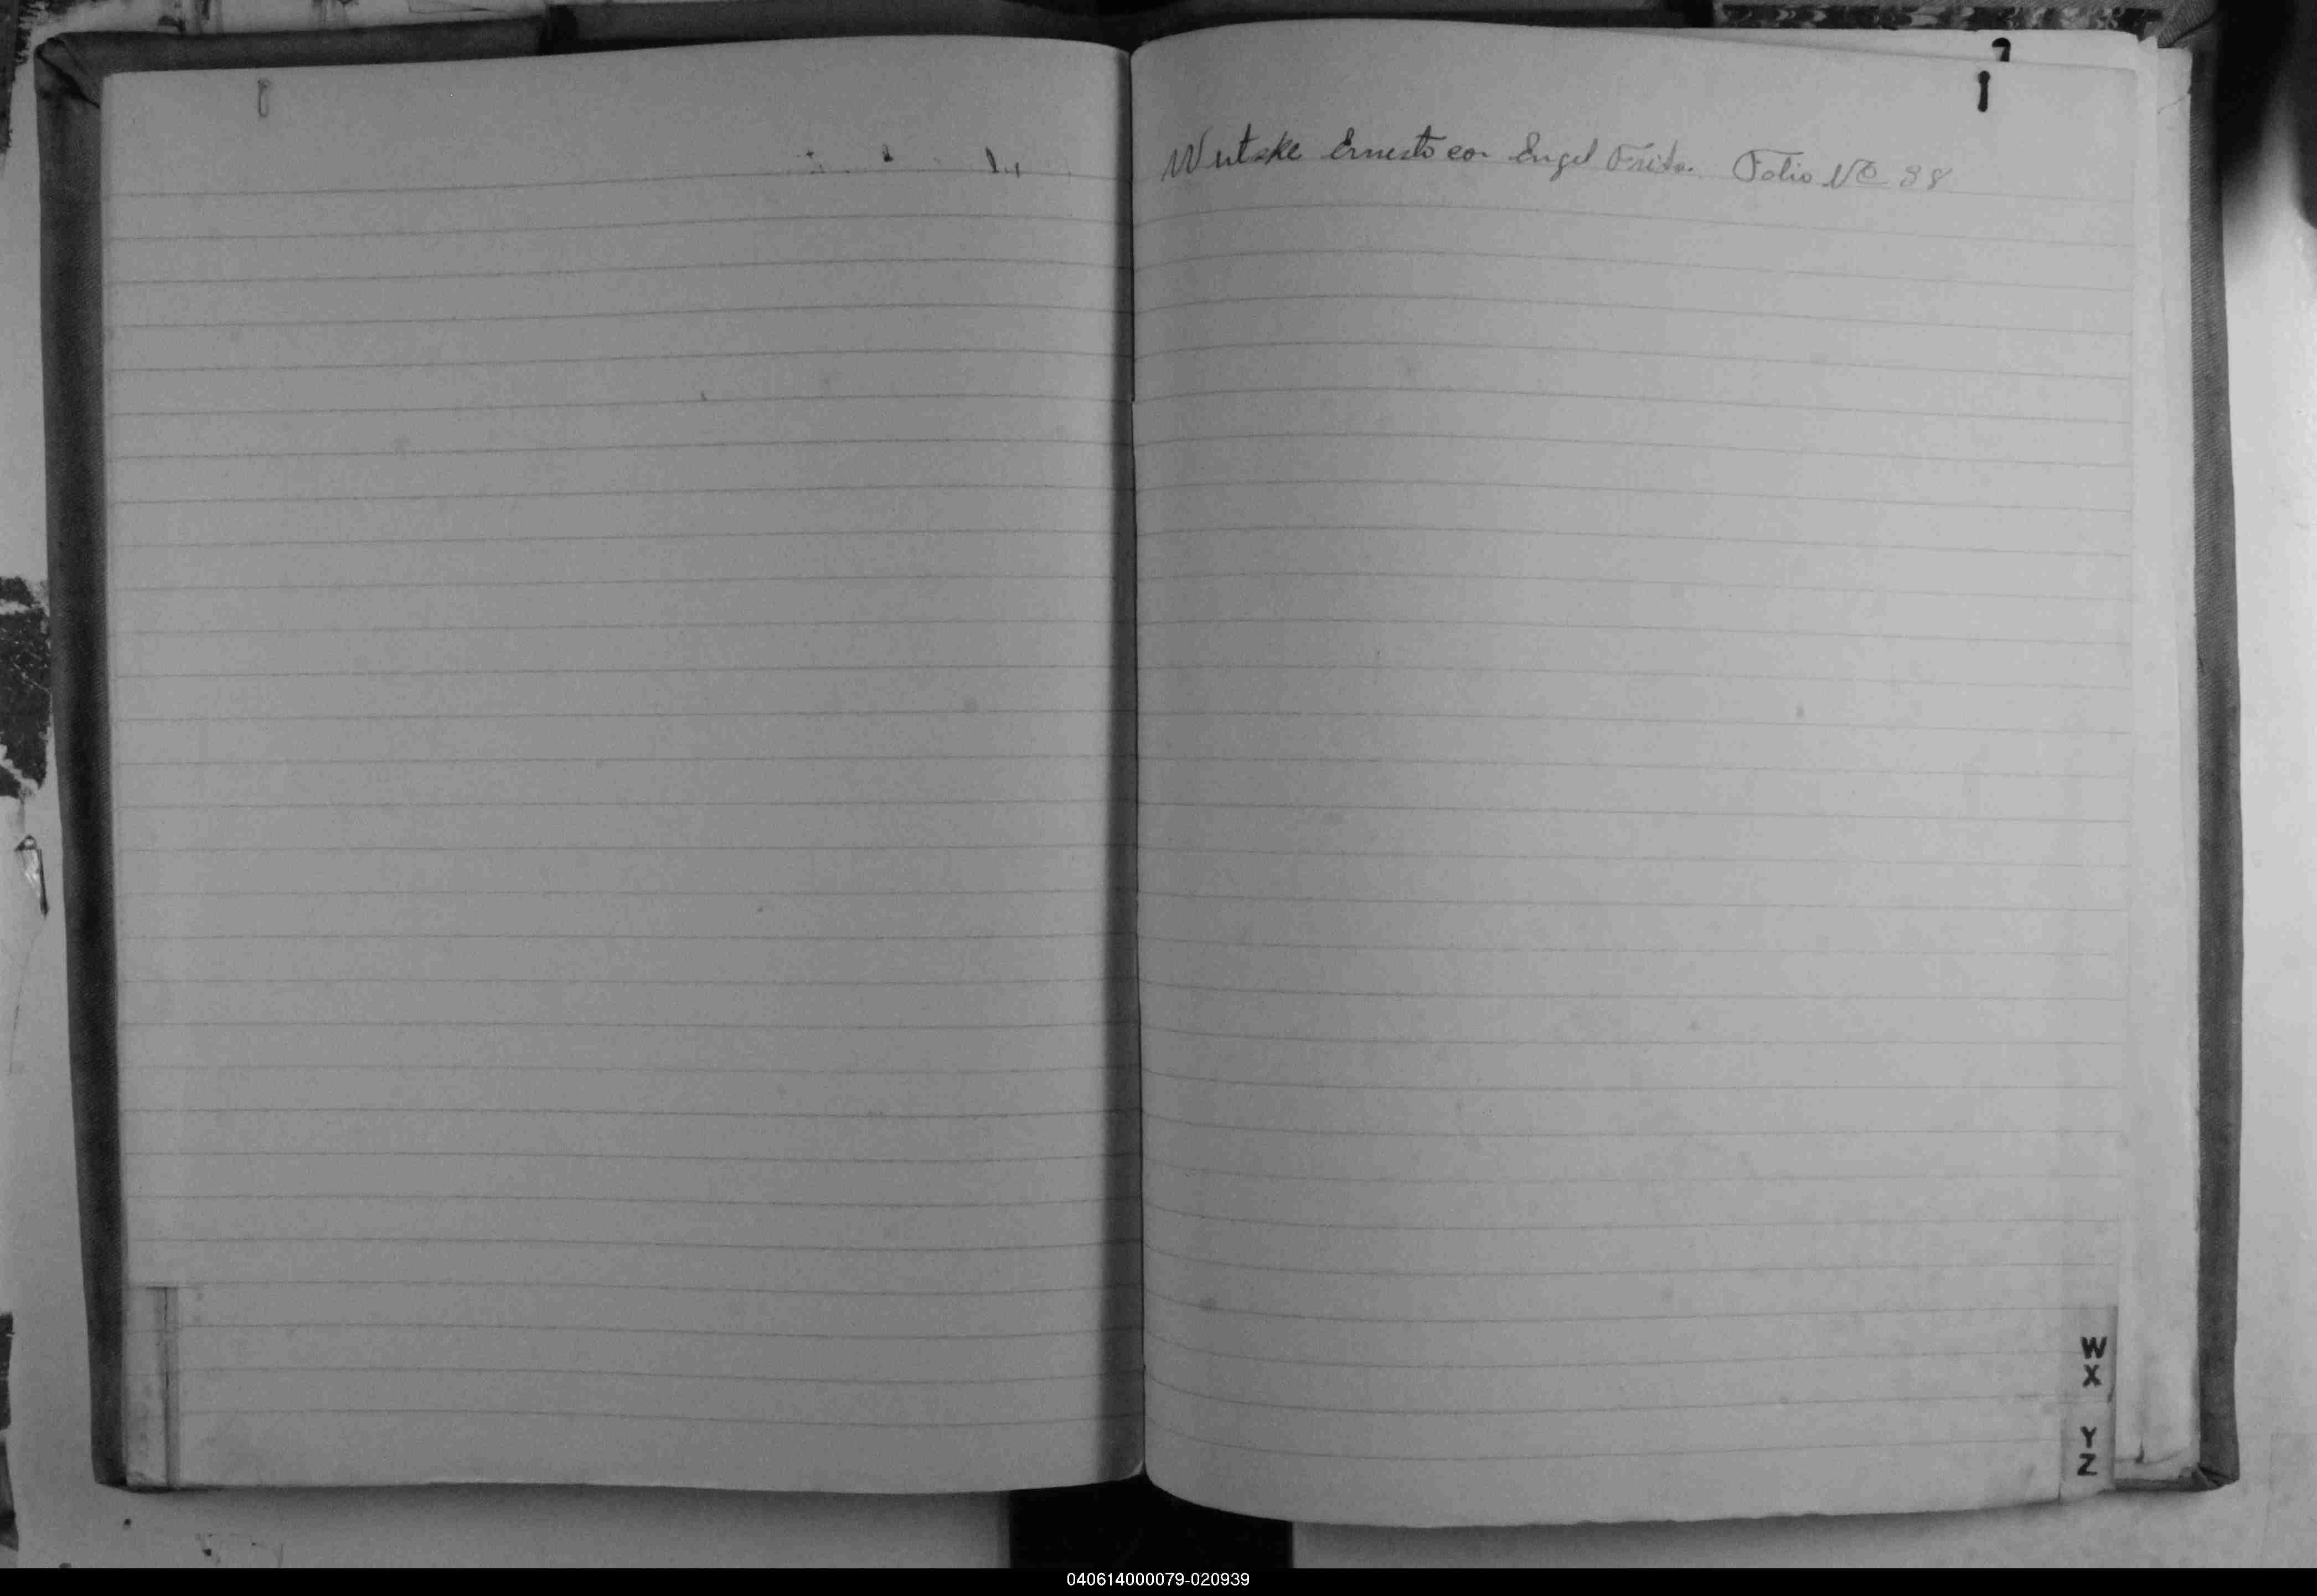 Wutske Ernesto con Engel Frida. Folio Nº 38
W
X
Y
Z
040614000079-020939